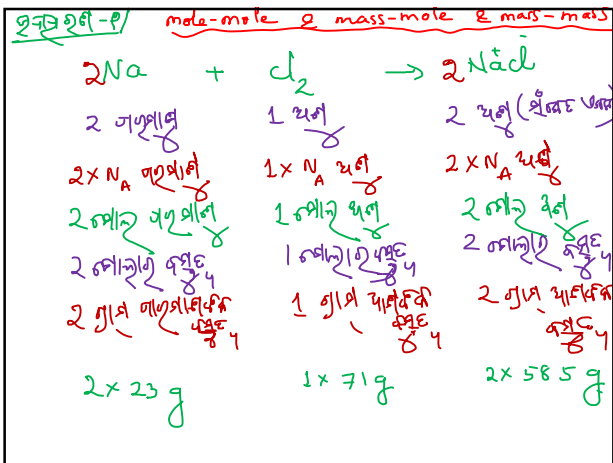 ଉଦାହରଣ-୧/ mole-mole ଓ mass-mole ଓ mass-mass
2Na + Cl₂ → 2Na⁺Cl⁻
2 ପରମାଣୁ 1 ଅଣୁ 2 ଅଣୁ (ସଂକେତ ଏକକ)
2 × N_A ପରମାଣୁ 1 × N_A ଅଣୁ 2 × N_A ଅଣୁ
2 ମୋଲ୍ ପରମାଣୁ 1 ମୋଲ୍ ଅଣୁ 2 ମୋଲ୍ ଅଣୁ
2 ମୋଲାର ବସ୍ତୁତ୍ୱ 1 ମୋଲାର ବସ୍ତୁତ୍ୱ 2 ମୋଲାର ବସ୍ତୁତ୍ୱ
2 ଗ୍ରାମ ପାରମାଣବିକ ବସ୍ତୁତ୍ୱ 1 ଗ୍ରାମ ଆଣବିକ ବସ୍ତୁତ୍ୱ 2 ଗ୍ରାମ ଆଣବିକ ବସ୍ତୁତ୍ୱ
2 × 23 g 1 × 71 g 2 × 58 5 g